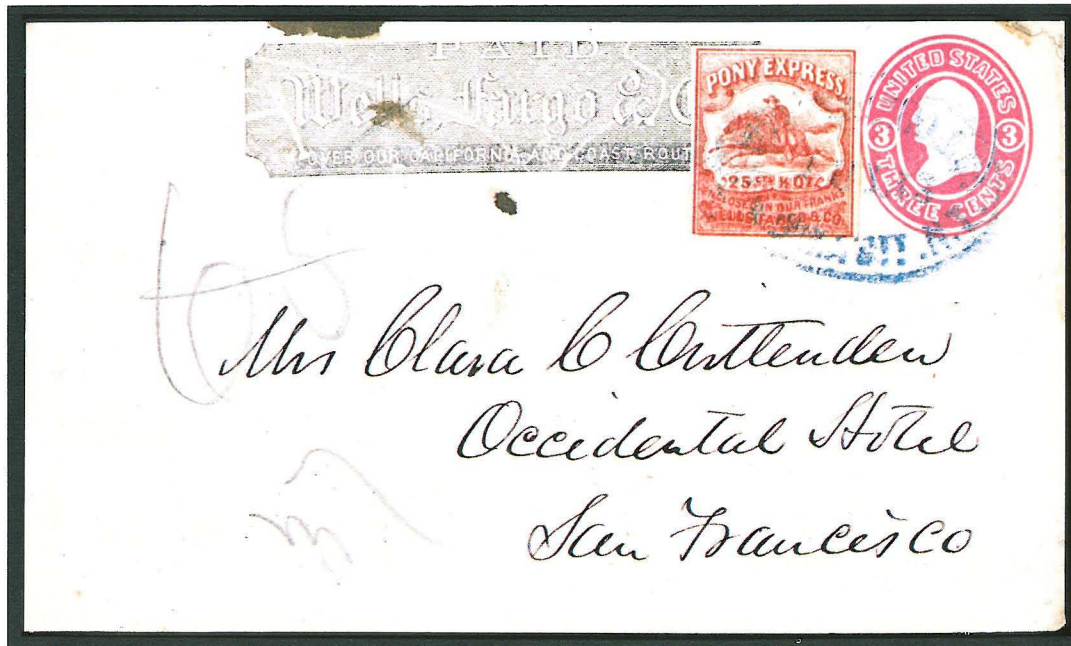 PAID
Wells, Fargo & C
OVER OUR CALIFORNIA AND COAST ROUT
PONY EXPRESS
25
ENCLOSED IN OUR FRANKS
WELLS, FARGO & CO.
UNITED STATES
3 3
THREE CENTS
Mrs Clara C Crittenden
Occidental Hotel
San Francisco